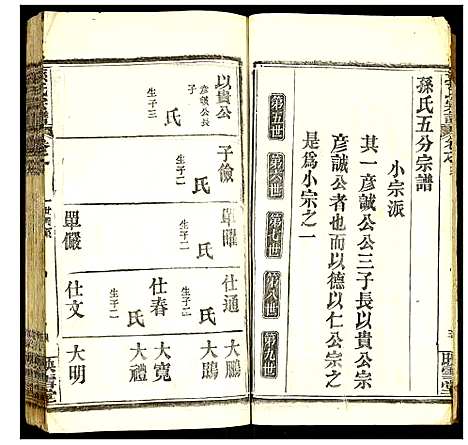 孫氏五分宗譜
小宗派
其一彦誠公公三子長以貴公宗
彦誠公者也而以德以仁公宗之
是為小宗之一
第五世
第六世
第七世
第八世
第九世
以貴公
彦誠公長
子
氏
生子三
子儉
氏
生子二
單曜
氏
生子二
單儼
仕通
氏
生子二
仕春
氏
生子二
仕文
大鵬
大鵾
大寬
大禮
大明